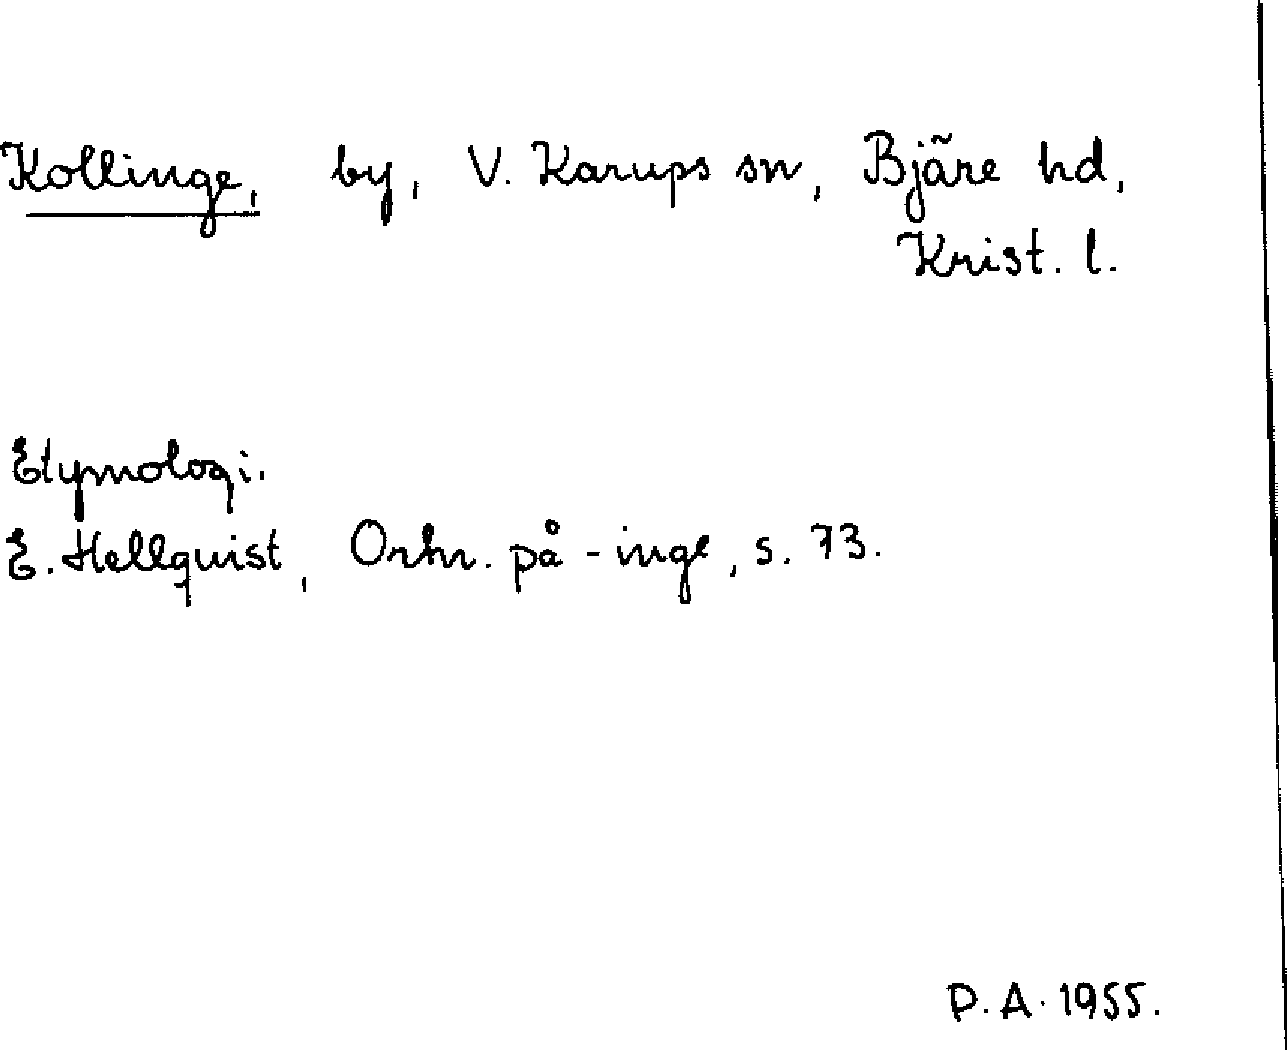 Kollinge, by, V. Karups sn, Bjäre hd,
Krist. l.
Etymologi.
E. Hellquist, Ortn. på -inge, s. 73.
P. A. 1955.